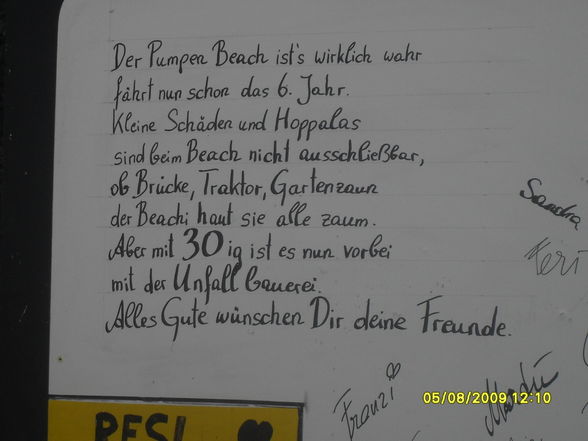 Der Pumpen Beach ist's wirklich wahr
fährt nun schon das 6. Jahr.
Kleine Schäden und Hoppalas
sind beim Beach nicht ausschließbar,
ob Brücke, Traktor, Gartenzaun
der Beachi haut sie alle zaum.
Aber mit 30ig ist es nun vorbei
mit der Unfallbauerei.
Alles Gute wünschen Dir deine Freunde.
Sandra
Franzi
05/08/2009 12:10
RESI